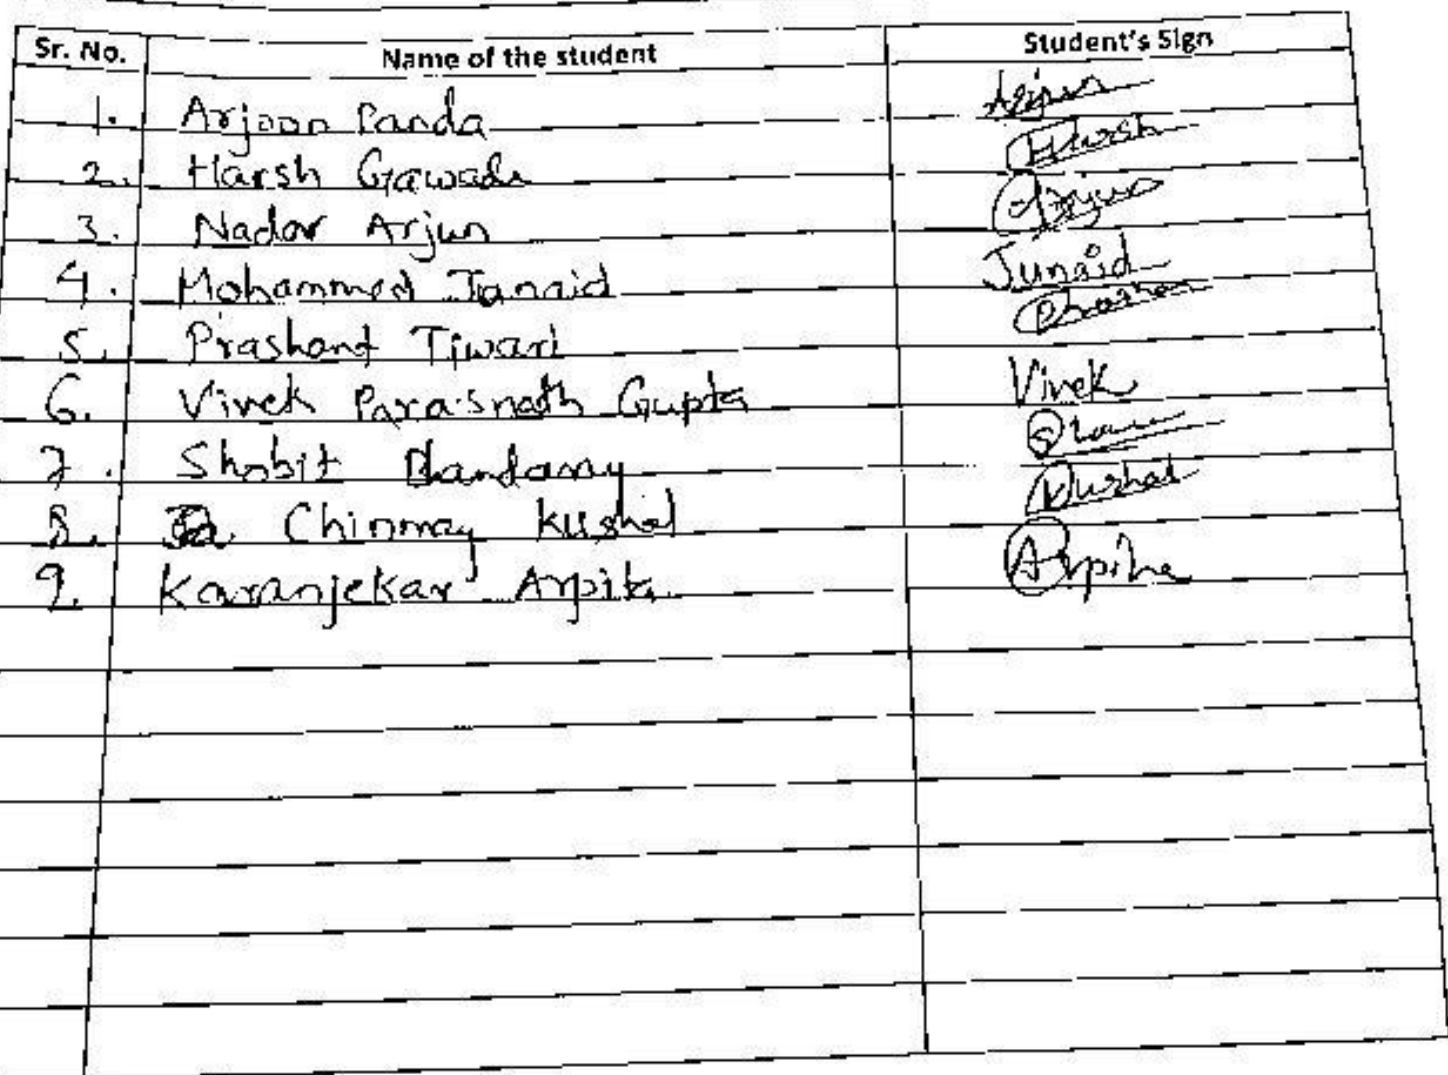 Sr. No. Name of the student Student's Sign
1. Arjoon Panda Arjun
2. Harsh Gawade Harsh
3. Nadar Arjun Arjun
4. Mohammed Junaid Junaid
5. Prashant Tiwari Prashant
6. Vivek Parasnath Gupta Vivek
7. Shobit
8. Chinmay Kushal Kushal
9. Karanjekar Arpita Arpita